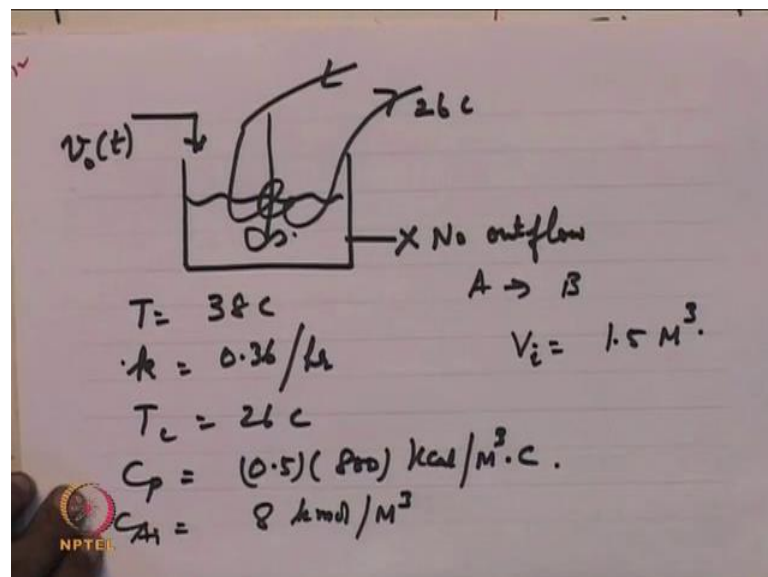 v₀(t)
26 C
X No outflow
A → B
T = 38 C
Vᵢ = 1.5 M³.
k = 0.36/hr
T_c = 26 C
C_p = (0.5)(800) kcal/M³.C.
C_Ai = 8 kmol/M³
NPTEL